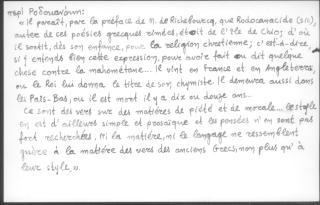 περὶ Ροδοκανάκη:
« Il paroît, par la préface de M. de Richebourcq, que Rodocanacide (sic),
auteur de ces poésies grecques rimées, étoit de l'Ile de Chio; d'où
il sortit, dès son enfance, pour la religion chrétienne; c'est-à-dire,
si j'entends bien cette expression, pour avoir fait ou dit quelque
chose contre la mahométane... Il vint en France et en Angleterre,
où le Roi lui donna le titre de son chymiste. Il demeura aussi dans
les Païs-Bas, où il est mort il y a dix ou douze ans..
Ce sont des vers sur des matières de piété et de morale... le style
en est d'ailleurs simple et prosaïque et les pensées n'en sont pas
fort recherchées. Ni la matière, ni le langage ne ressemblent
guère à la matière des vers des anciens Grecs, non plus qu'à
leur style. ».